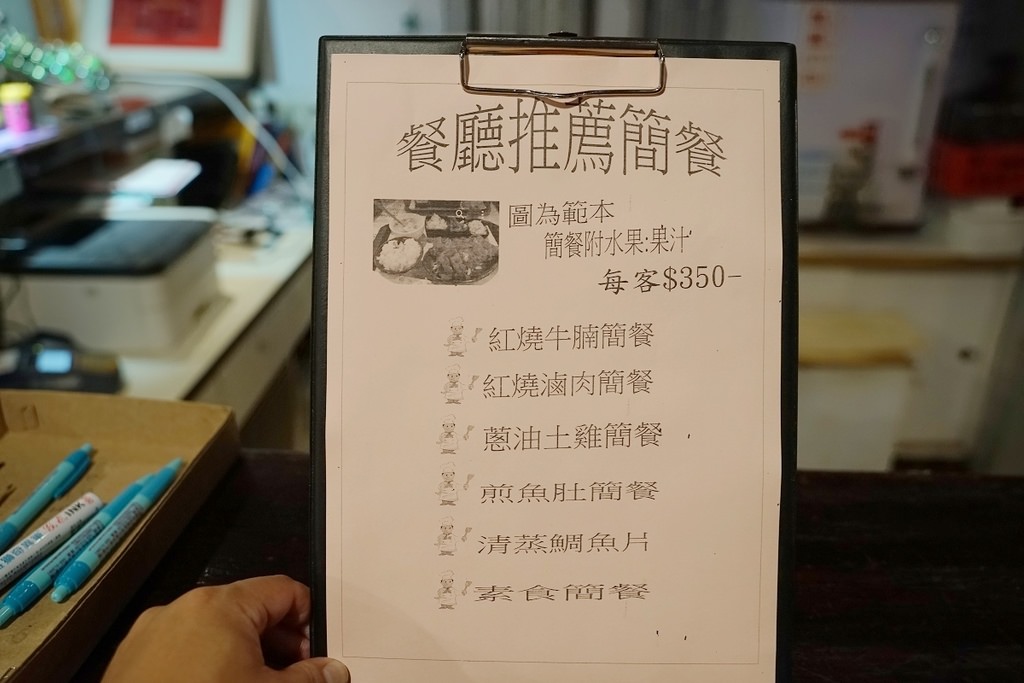 餐廳推薦簡餐
圖為範本
簡餐附水果.果汁
每客$350-
紅燒牛腩簡餐
紅燒滷肉簡餐
蔥油土雞簡餐
煎魚肚簡餐
清蒸鯛魚片
素食簡餐